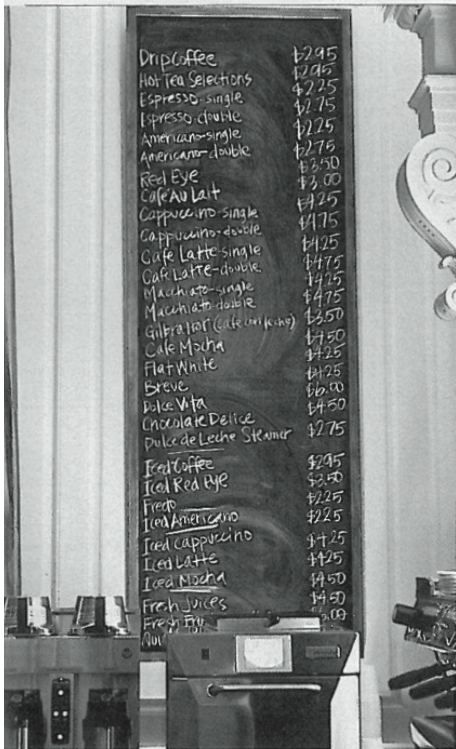 Drip Coffee $2.95
Hot Tea Selections $2.95
Espresso-single $2.25
Espresso-double $2.75
Americano-single $2.25
Americano-double $2.75
Red Eye $3.50
Cafe Au Lait $3.00
Cappuccino-single $4.25
Cappuccino-double $4.75
Cafe Latte-single $4.25
Cafe Latte-double $4.75
Macchiato-single $4.25
Macchiato-double $4.75
Gilbraltor (cafe con leche) $3.50
Cafe Mocha $4.50
Flat White $4.25
Breve $4.25
Dolce Vita $6.00
Chocolate Delice $4.50
Dulce de Leche Steamer $2.75
Iced Coffee $2.95
Iced Red Eye $3.50
Fredo $2.25
Iced Americano $2.25
Iced Cappuccino $4.25
Iced Latte $4.25
Iced Mocha $4.50
Fresh Juices $4.50
Fresh